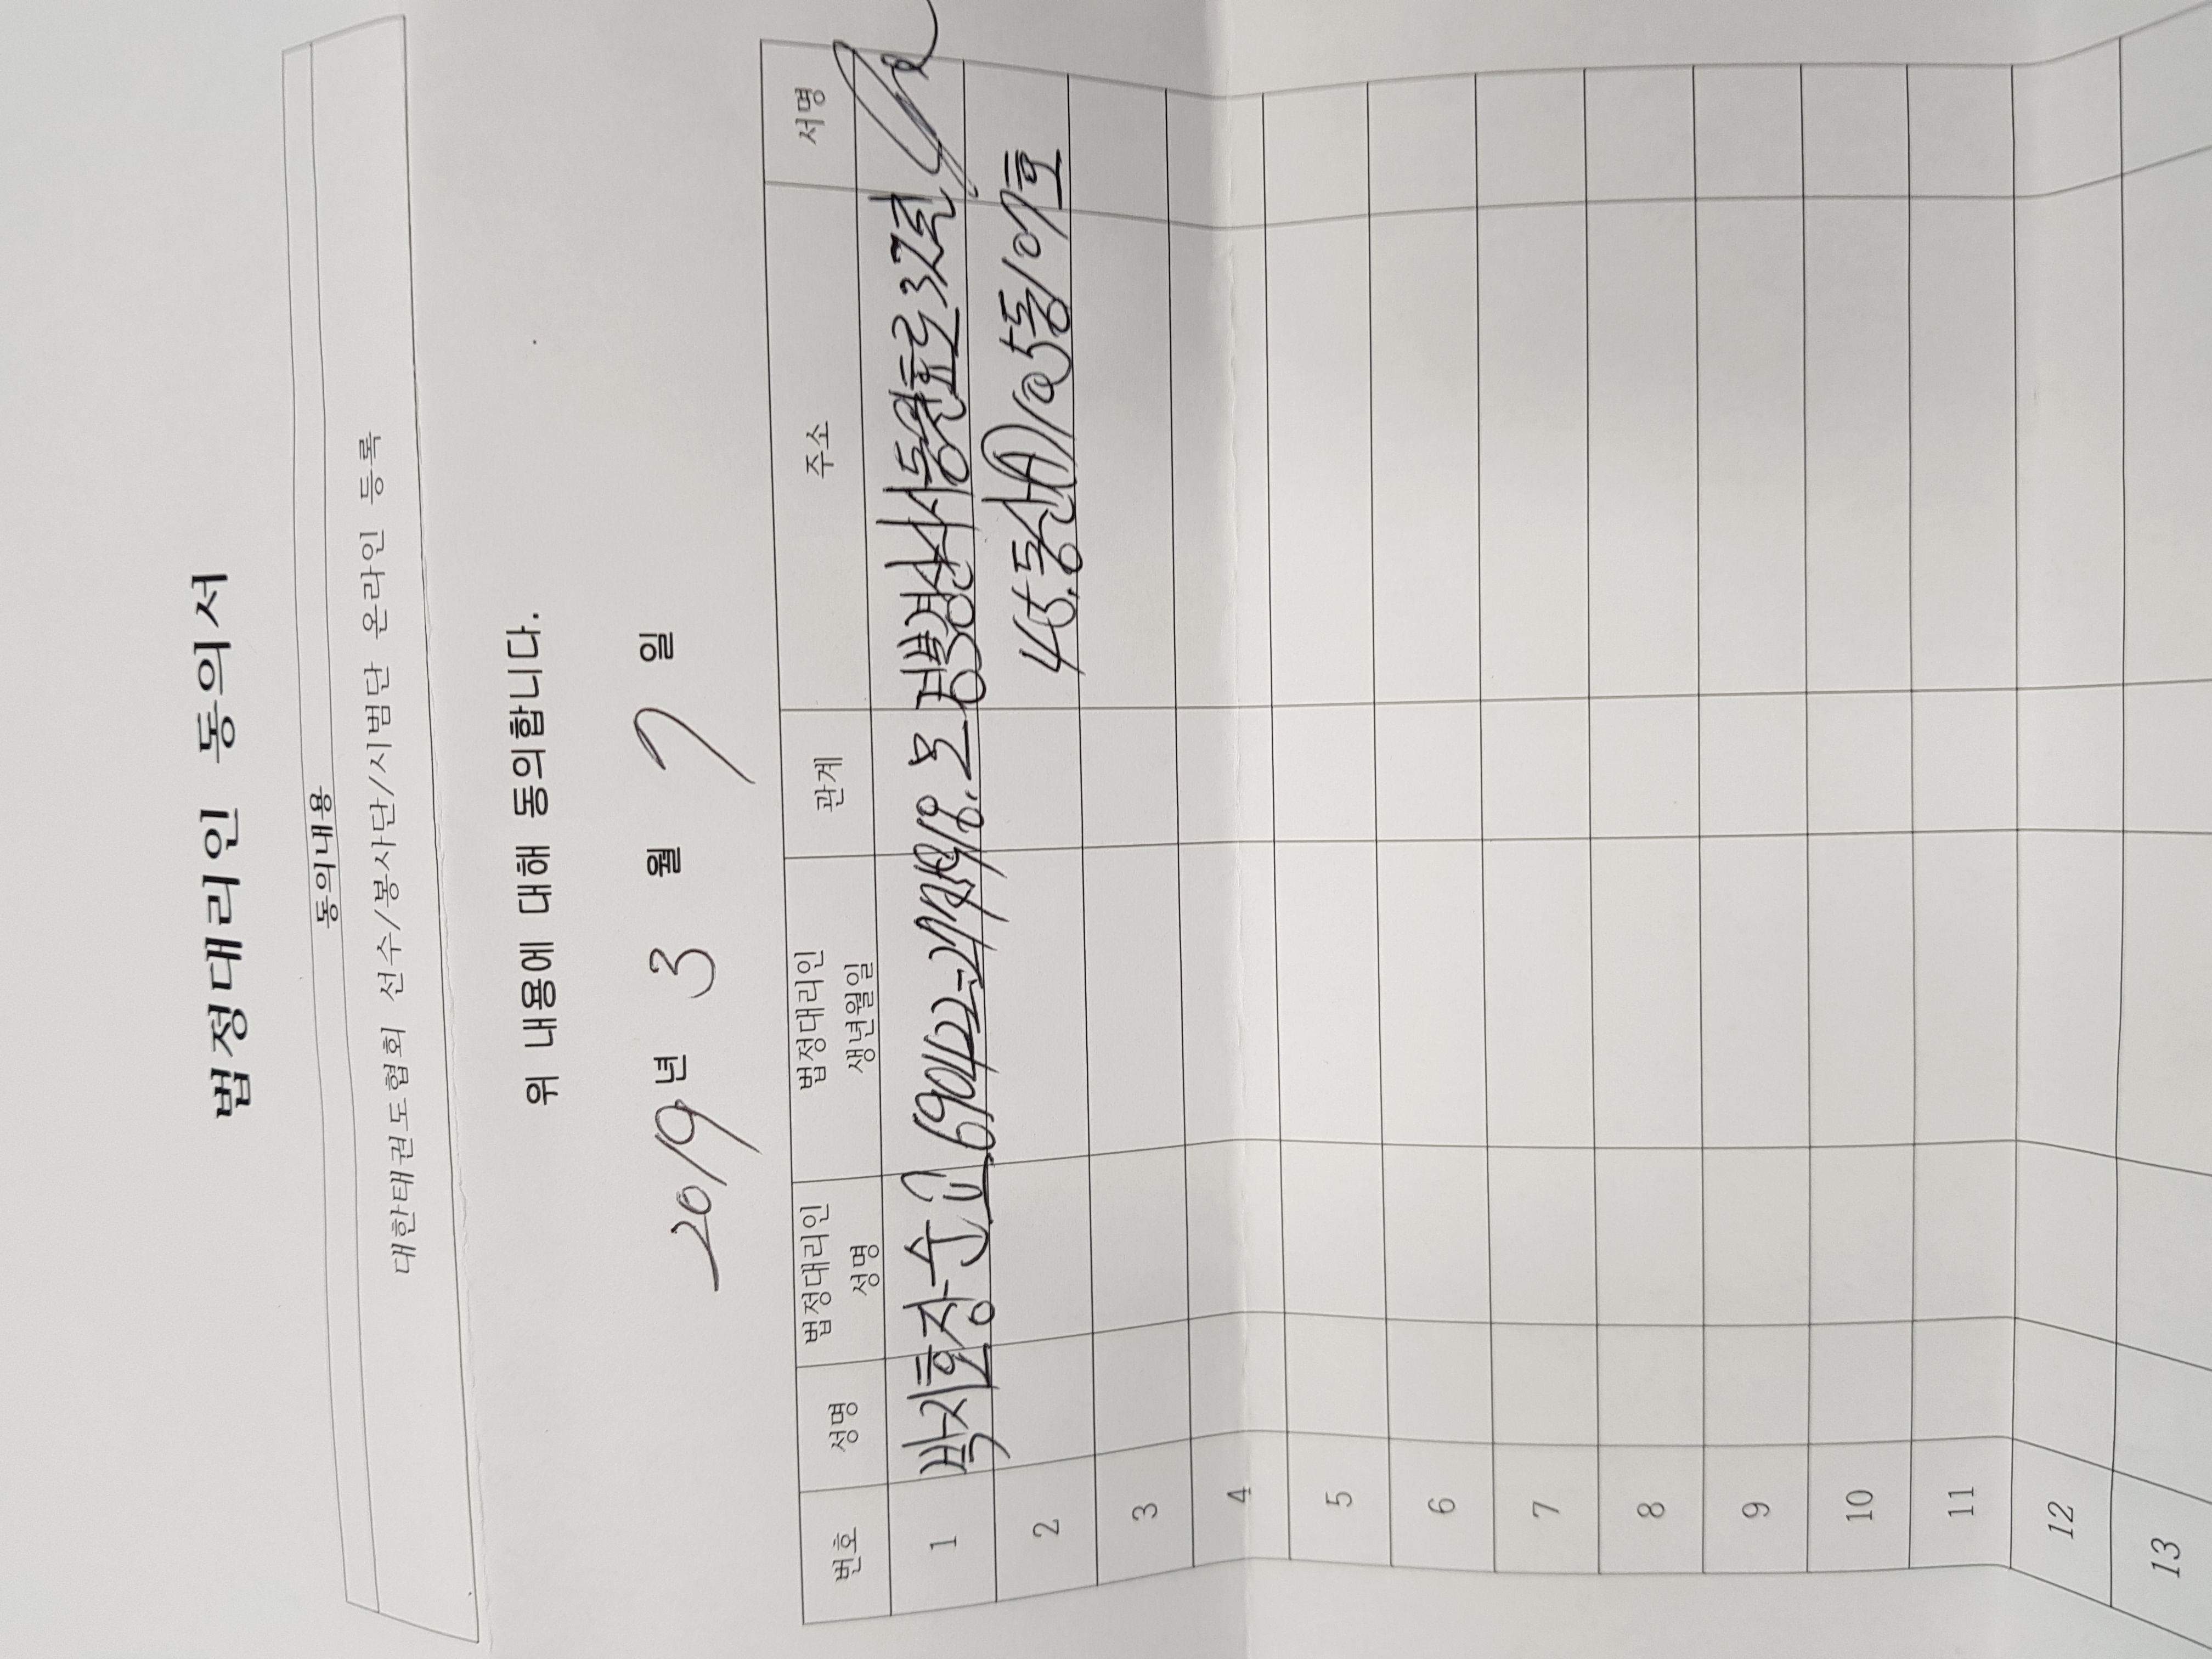 법정대리인 동의서
동의내용
대한태권도협회 선수/봉사단/시범단 온라인 등록
위 내용에 대해 동의합니다.
2019년 3월 7일
번호 성명 법정대리인 성명 법정대리인 생년월일 관계 주소 서명
1 박지호 장순 690422- 모 경북경산시 32길
45. 105동 101호
2
3
4
5
6
7
8
9
10
11
12
13